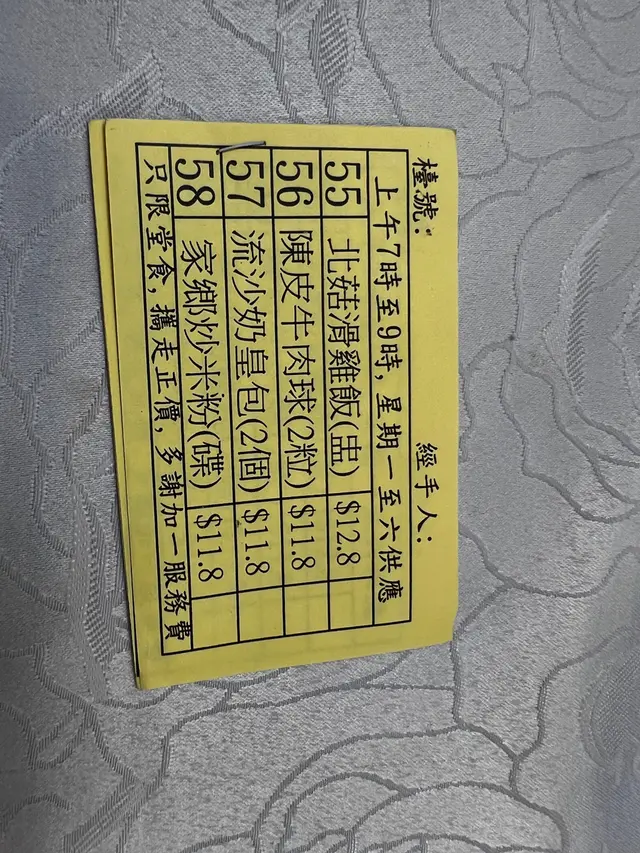 檯號： 經手人：
上午7時至9時，星期一至六供應
55 北菇滑雞飯(盅) $12.8
56 陳皮牛肉球(2粒) $11.8
57 流沙奶皇包(2個) $11.8
58 家鄉炒米粉(碟) $11.8
只限堂食，攜走正價，多謝加一服務費